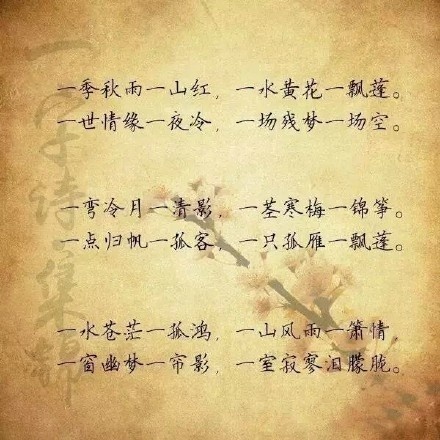 一字诗集锦
一季秋雨一山红，一水黄花一飘莲。
一世情缘一夜冷，一场残梦一场空。
一弯冷月一清影，一茎寒梅一锦筝。
一点归帆一孤客，一只孤雁一飘莲。
一水苍茫一孤鸿，一山风雨一箫情，
一窗幽梦一帘影，一室寂寥泪朦胧。